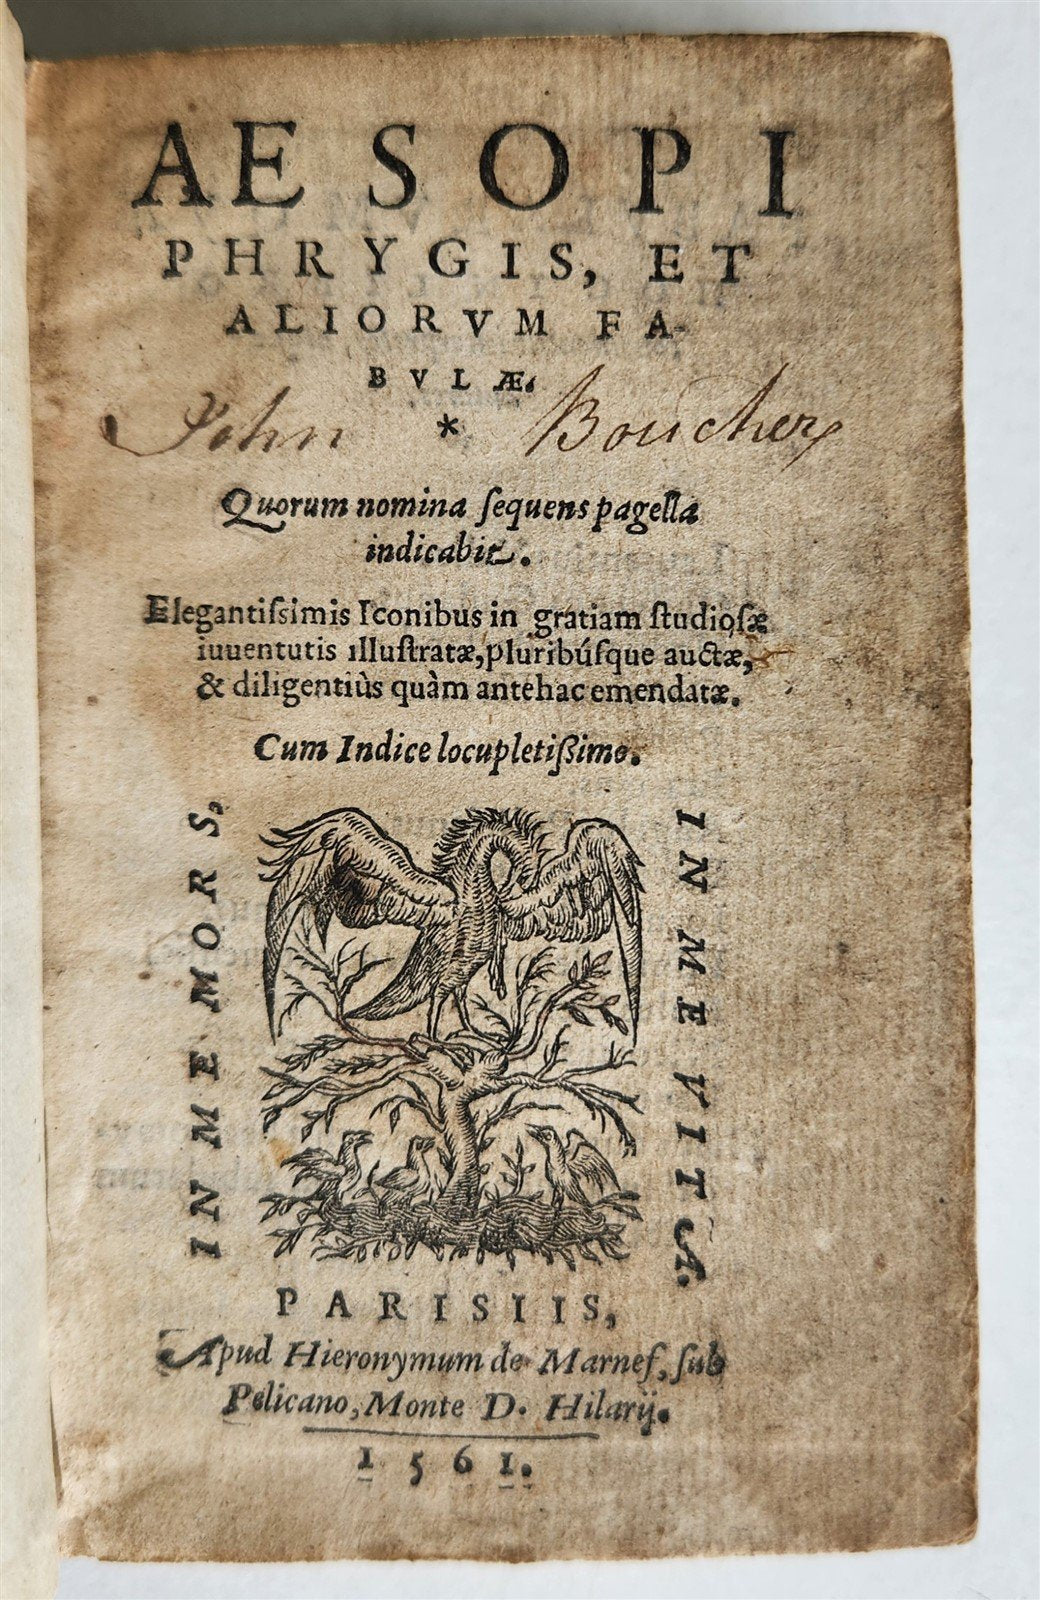 AESOPI
PHRYGIS, ET
ALIORVM FA-
BVLÆ.
John * Boucher
Quorum nomina ſequens pagella
indicabit.
Elegantiſsimis Iconibus in gratiam ſtudioſæ
iuuentutis illuſtratæ, pluribúſque auctæ,
& diligentiùs quàm antehac emendatæ.
Cum Indice locupletißimo.
IN ME MORS,
IN ME VITA.
PARISIIS,
Apud Hieronymum de Marnef, ſub
Pelicano, Monte D. Hilarij.
1561.